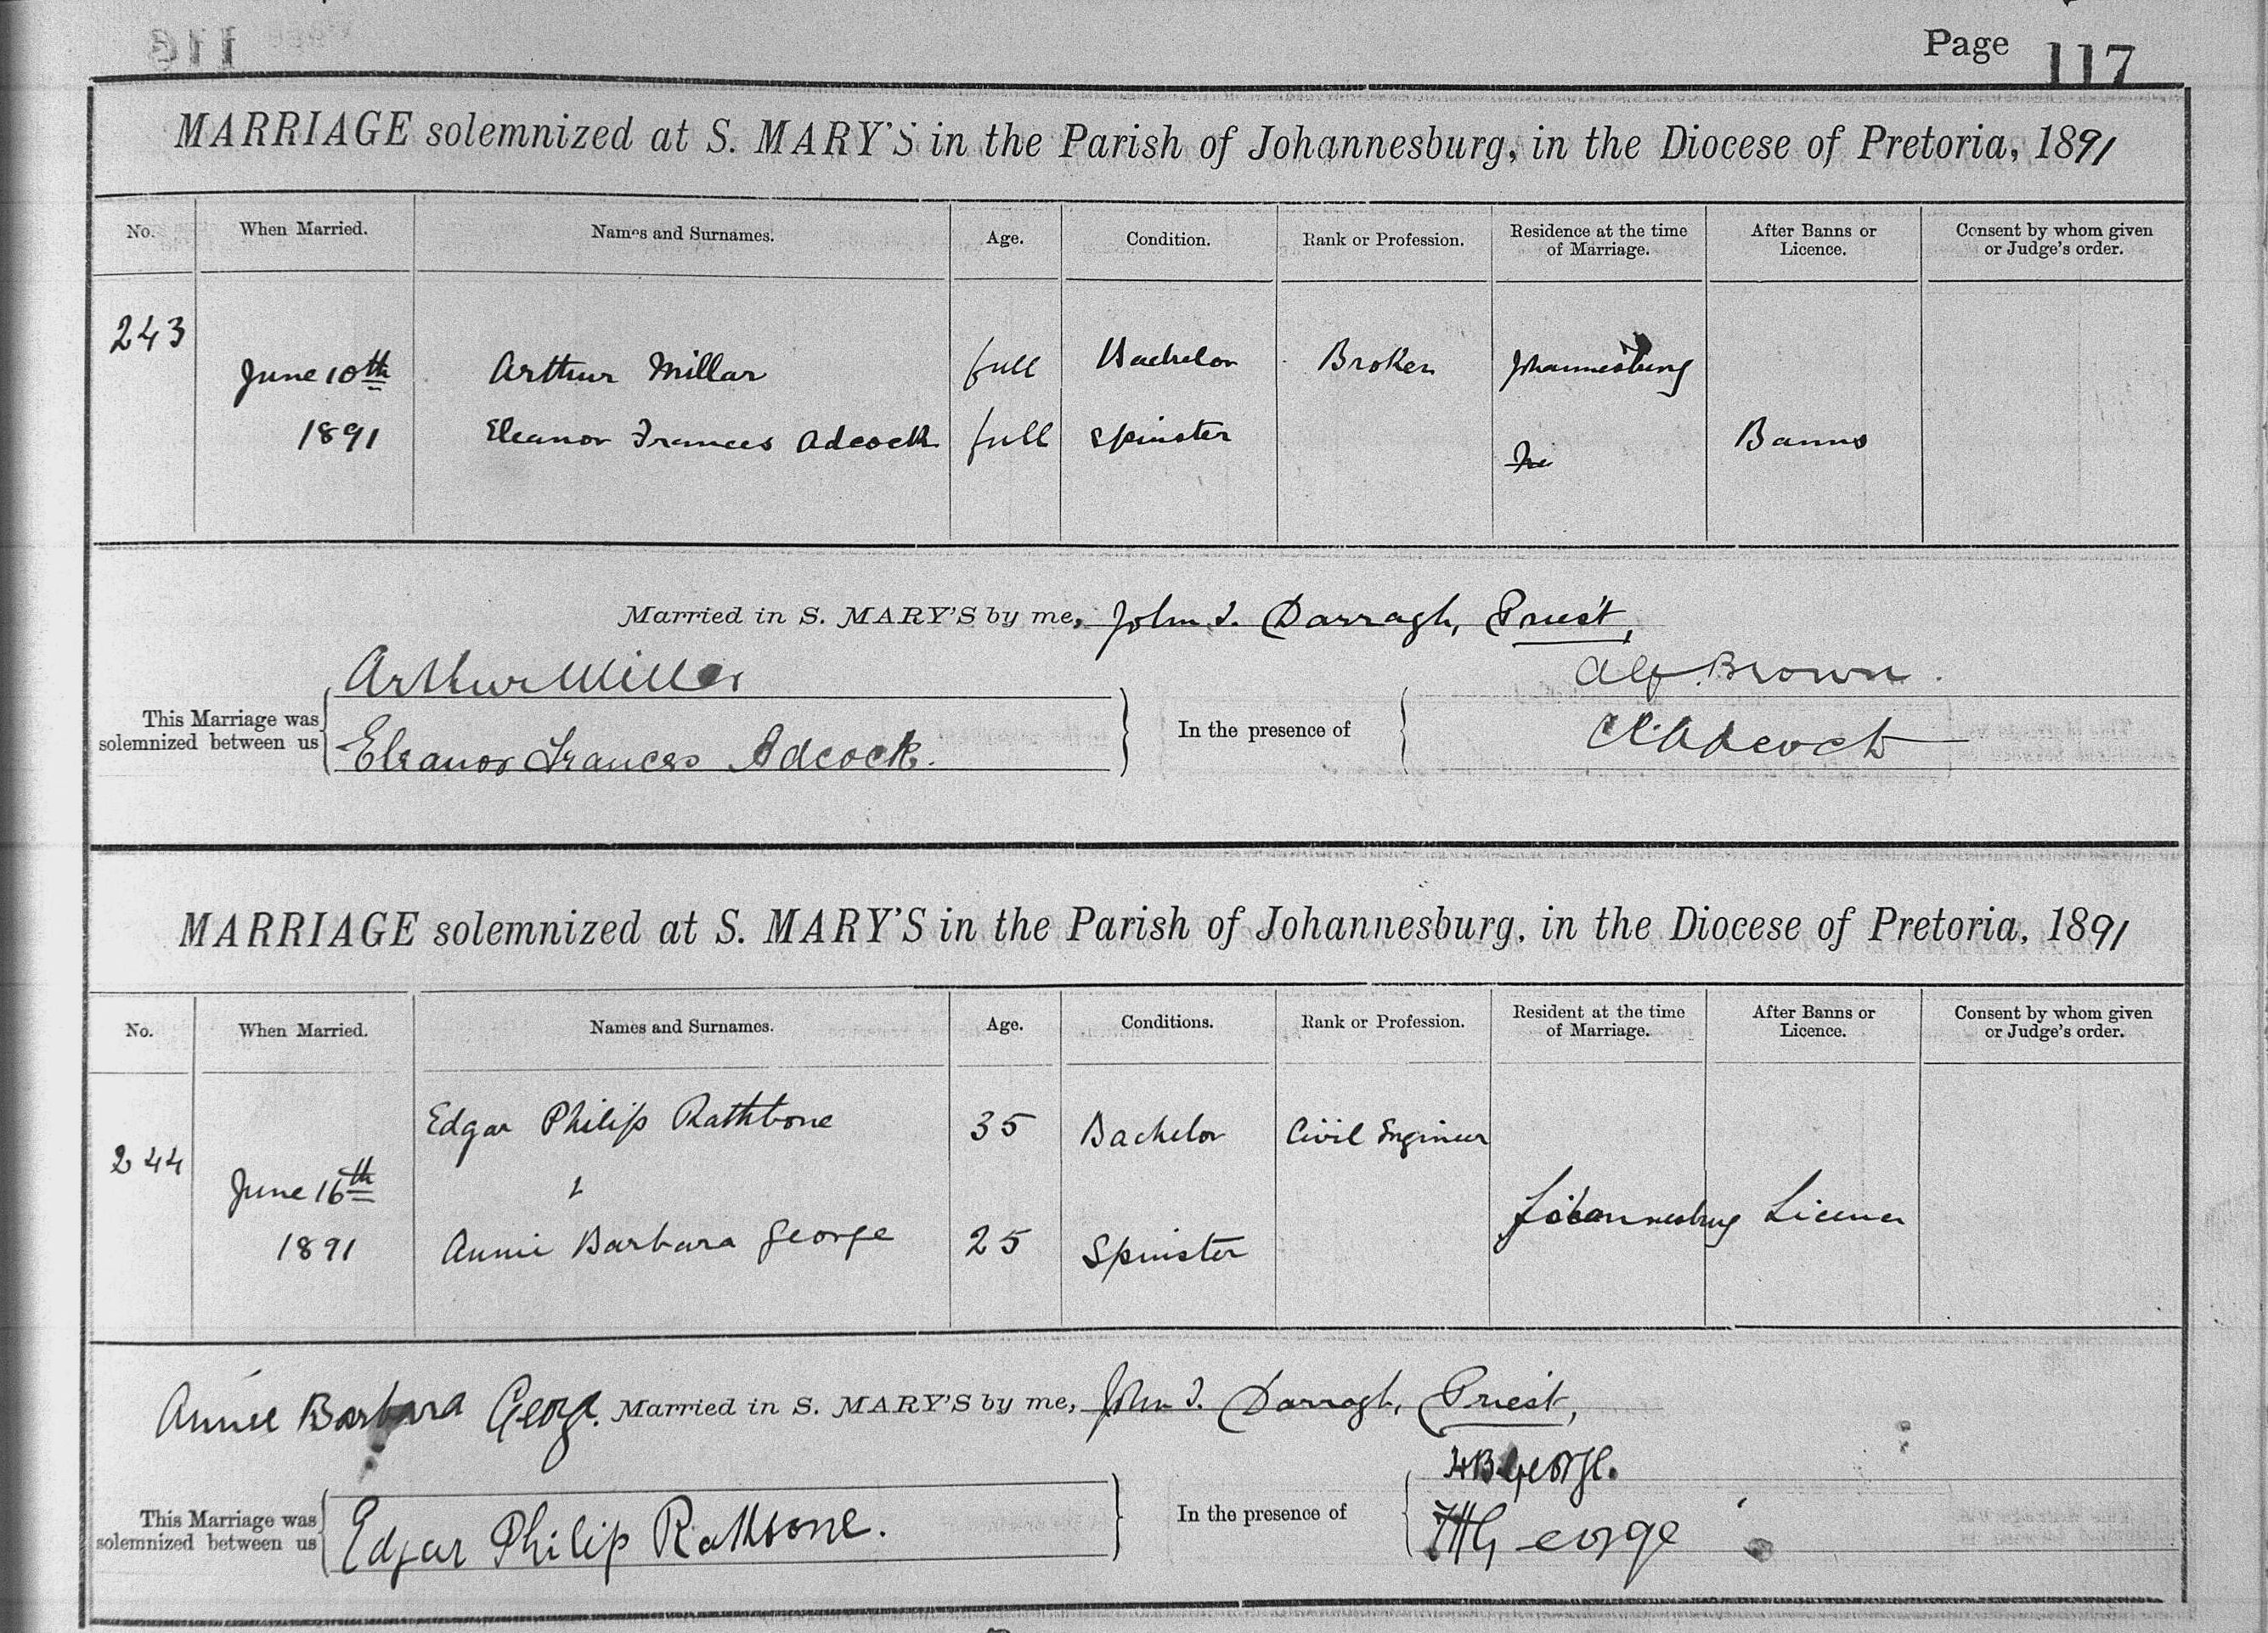 Page 117
MARRIAGE solemnized at S. MARY'S in the Parish of Johannesburg, in the Diocese of Pretoria, 1891
No. When Married. Names and Surnames. Age. Condition. Rank or Profession. Residence at the time of Marriage. After Banns or Licence. Consent by whom given or Judge's order.
243
June 10th Arthur Millar full Bachelor Broker Johannesburg
1891 Eleanor Frances Adcock full Spinster Banns
Married in S. MARY'S by me, John T. Darragh, Priest,
Arthur Millar Alf. Brown.
This Marriage was solemnized between us In the presence of
Eleanor Frances Adcock. Adcock
MARRIAGE solemnized at S. MARY'S in the Parish of Johannesburg, in the Diocese of Pretoria, 1891
No. When Married. Names and Surnames. Age. Conditions. Rank or Profession. Resident at the time of Marriage. After Banns or Licence. Consent by whom given or Judge's order.
Edgar Philip Rathbone 35 Bachelor Civil Engineer
244
June 16th Johannesburg Licence
1891 Annie Barbara George 25 Spinster
Annie Barbara George. Married in S. MARY'S by me, John T. Darragh, Priest,
HB George.
This Marriage was solemnized between us Edgar Philip Rathbone. In the presence of George